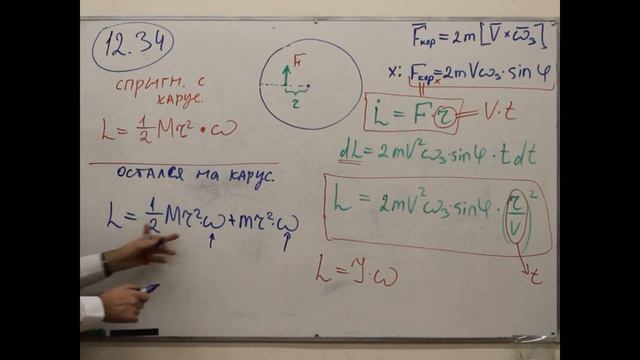 12.34
СПРЫГН. С
КАРУС.
L = 1/2 Mr² • ω
ОСТАЛСЯ НА КАРУС.
L = 1/2 Mr²·ω + mr²·ω
F
r
F̄кор = 2m [V̄ × ω̄з]
x: Fкорx = 2mVωз · sin φ
L̇ = F · r = V · t
dL = 2mV²ωз · sin φ · t dt
L = 2mV²ωз · sin φ · (r/V)²
t
L = J · ω